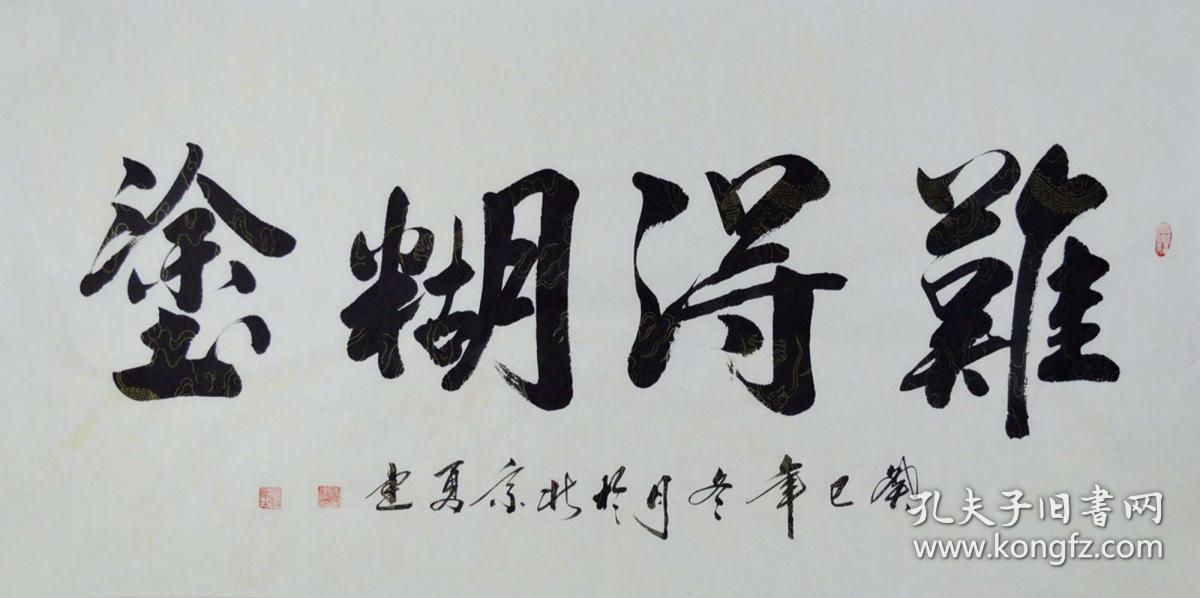 難得糊塗
癸巳年冬月於北京夏建
孔夫子旧书网
www.kongfz.com